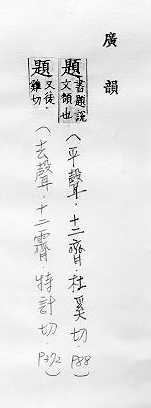 廣韻
題書題說文額也(平聲．十二齊．杜奚切．P88)
題又徒．雞切(去聲．十二霽．特計切．P372)